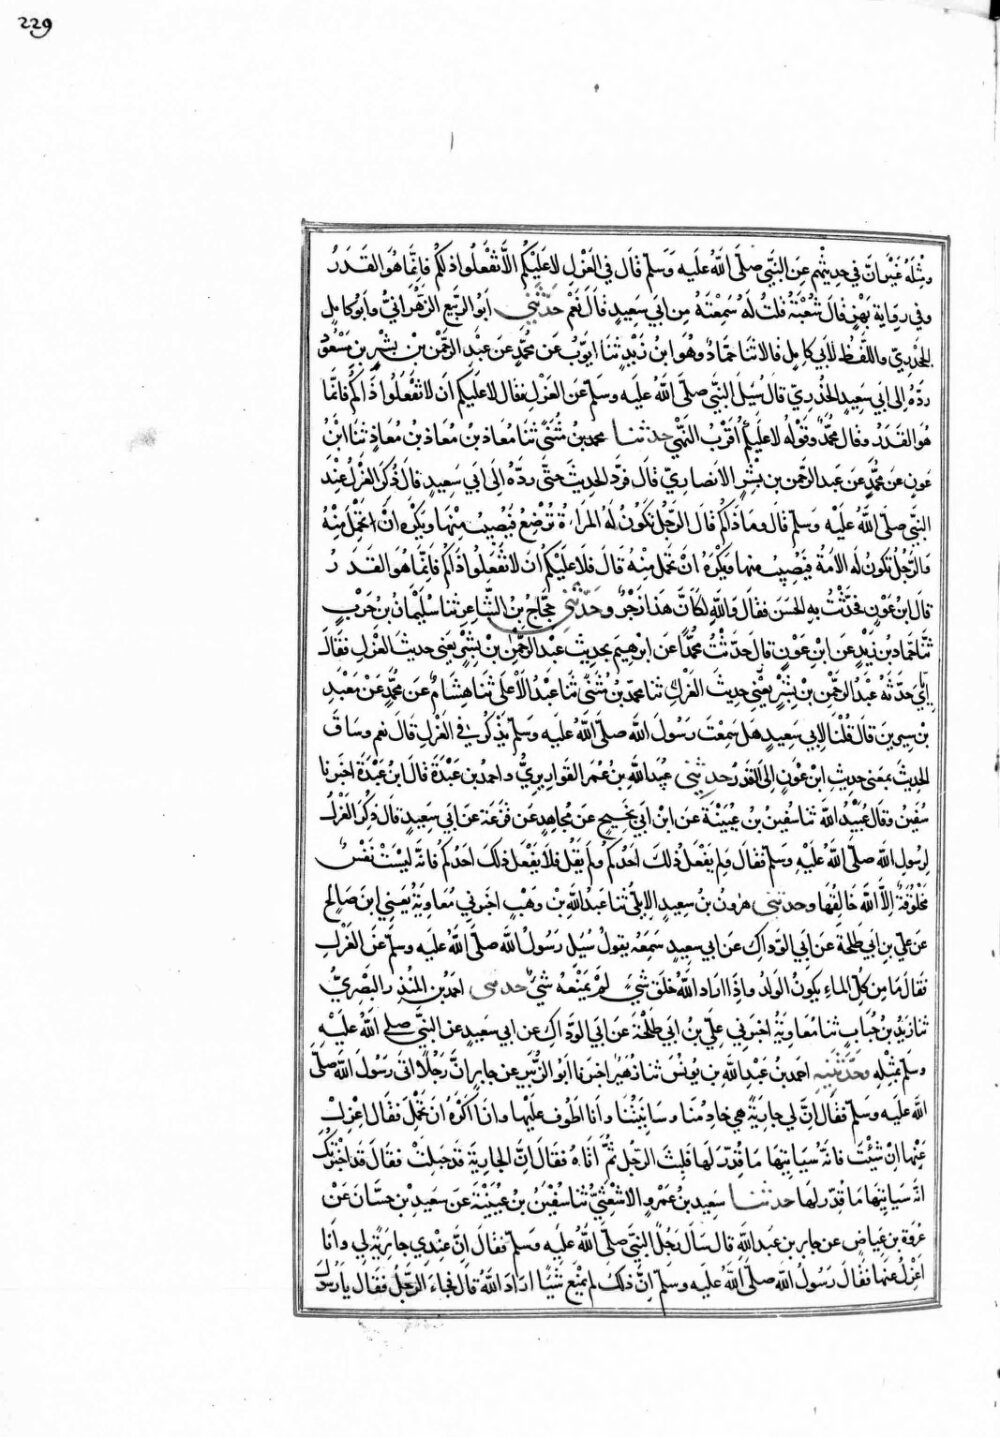 229
مثله غير ان في حديثهم عن النبي صلى الله عليه وسلم قال في العزل لا عليكم الا تفعلوا ذلكم فانما هو القدر
وفي رواية بهز قال شعبة قلت له سمعته من ابي سعيد قال نعم حدثني ابو الربيع الزهراني وابو كامل
الجحدري واللفظ لابي كامل قالا ثنا حماد وهو ابن زيد ثنا ايوب عن محمد عن عبد الرحمن بن بشر بن مسعود
رده الى ابي سعيد الخدري قال سئل النبي صلى الله عليه وسلم عن العزل فقال لا عليكم ان لا تفعلوا ذاكم فانما
هو القدر وقال محمد وقوله لا عليكم اقرب النهي حدثنا محمد بن مثنى ثنا معاذ بن معاذ بن معاذ ثنا ابن
عون عن محمد عن عبد الرحمن بن بشر الانصاري قال فرد الحديث حتى رده الى ابي سعيد قال ذكر العزل عند
النبي صلى الله عليه وسلم قال وما ذاكم قال الرجل تكون له المراة ترضع فيصيب منها ويكره ان تحمل منه
والرجل تكون له الامة فيصيب منها ويكره ان تحمل منه قال فلا عليكم ان لا تفعلوا ذاكم فانما هو القدر
قال ابن عون فحدثت به الحسن فقال والله لكان هذا زجر وحدثني حجاج بن الشاعر ثنا سليمان بن حرب
ثنا حماد بن زيد عن ابن عون قال حدثت محمدا عن ابرهيم بحديث عبد الرحمن بن بشر يعني حديث العزل فقال
اياي حدثه عبد الرحمن بن بشر يعني حديث العزل ثنا محمد بن مثنى ثنا عبد الاعلى ثنا هشام عن محمد عن معبد
بن سيرين قال قلنا لابي سعيد هل سمعت رسول الله صلى الله عليه وسلم يذكر في العزل قال نعم وساق
الحديث بمعنى حديث ابن عون الى القدر حدثني عبيد الله بن عمر القواريري واحمد بن عبدة قال ابن عبدة اخبرنا
سفين وقال عبيد الله ثنا سفين بن عيينة عن ابن ابي نجيح عن مجاهد عن قزعة عن ابي سعيد قال ذكر العزل
لرسول الله صلى الله عليه وسلم فقال ولم يفعل ذلك احدكم ولم يقل فلا يفعل ذلك احدكم فانه ليست نفس
مخلوقة الا الله خالقها وحدثني هرون بن سعيد الايلي ثنا عبد الله بن وهب اخبرني معاوية يعني ابن صالح
عن علي بن ابي طلحة عن ابي الوداك عن ابي سعيد سمعه يقول سئل رسول الله صلى الله عليه وسلم عن العزل
فقال ما من كل الماء يكون الولد واذا اراد الله خلق شيء لم يمنعه شيء حدثني احمد بن المنذر البصري
ثنا زيد بن حباب ثنا معاوية اخبرني علي بن ابي طلحة عن ابي الوداك عن ابي سعيد عن النبي صلى الله عليه
وسلم بمثله وحدثنيه احمد بن عبد الله بن يونس ثنا زهير اخبرنا ابو الزبير عن جابر ان رجلا اتى رسول الله صلى
الله عليه وسلم فقال ان لي جارية هي خادمنا وسانيتنا وانا اطوف عليها وانا اكره ان تحمل فقال اعزل
عنها ان شئت فانه سياتيها ما قدر لها فلبث الرجل ثم اتاه فقال ان الجارية قد حبلت فقال قد اخبرتك
انه سياتيها ما قدر لها حدثنا سعيد بن عمرو الاشعثي ثنا سفين بن عيينة عن سعيد بن حسان عن
عروة بن عياض عن جابر بن عبد الله قال سال رجل النبي صلى الله عليه وسلم فقال ان عندي جارية لي وانا
اعزل عنها فقال رسول الله صلى الله عليه وسلم ان ذلك لم يمنع شيئا اراد الله قال فجاء الرجل فقال يا رسول